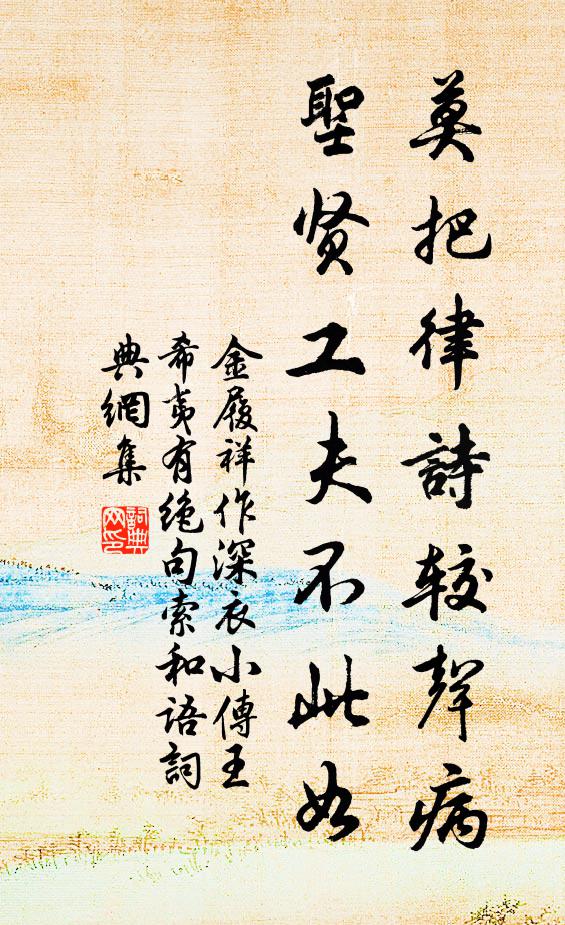 莫把律詩較聲病
聖贤工夫不此如
金履祥作深衣小傳王
希夷有绝句索和语詞
典網集
詞典
网印